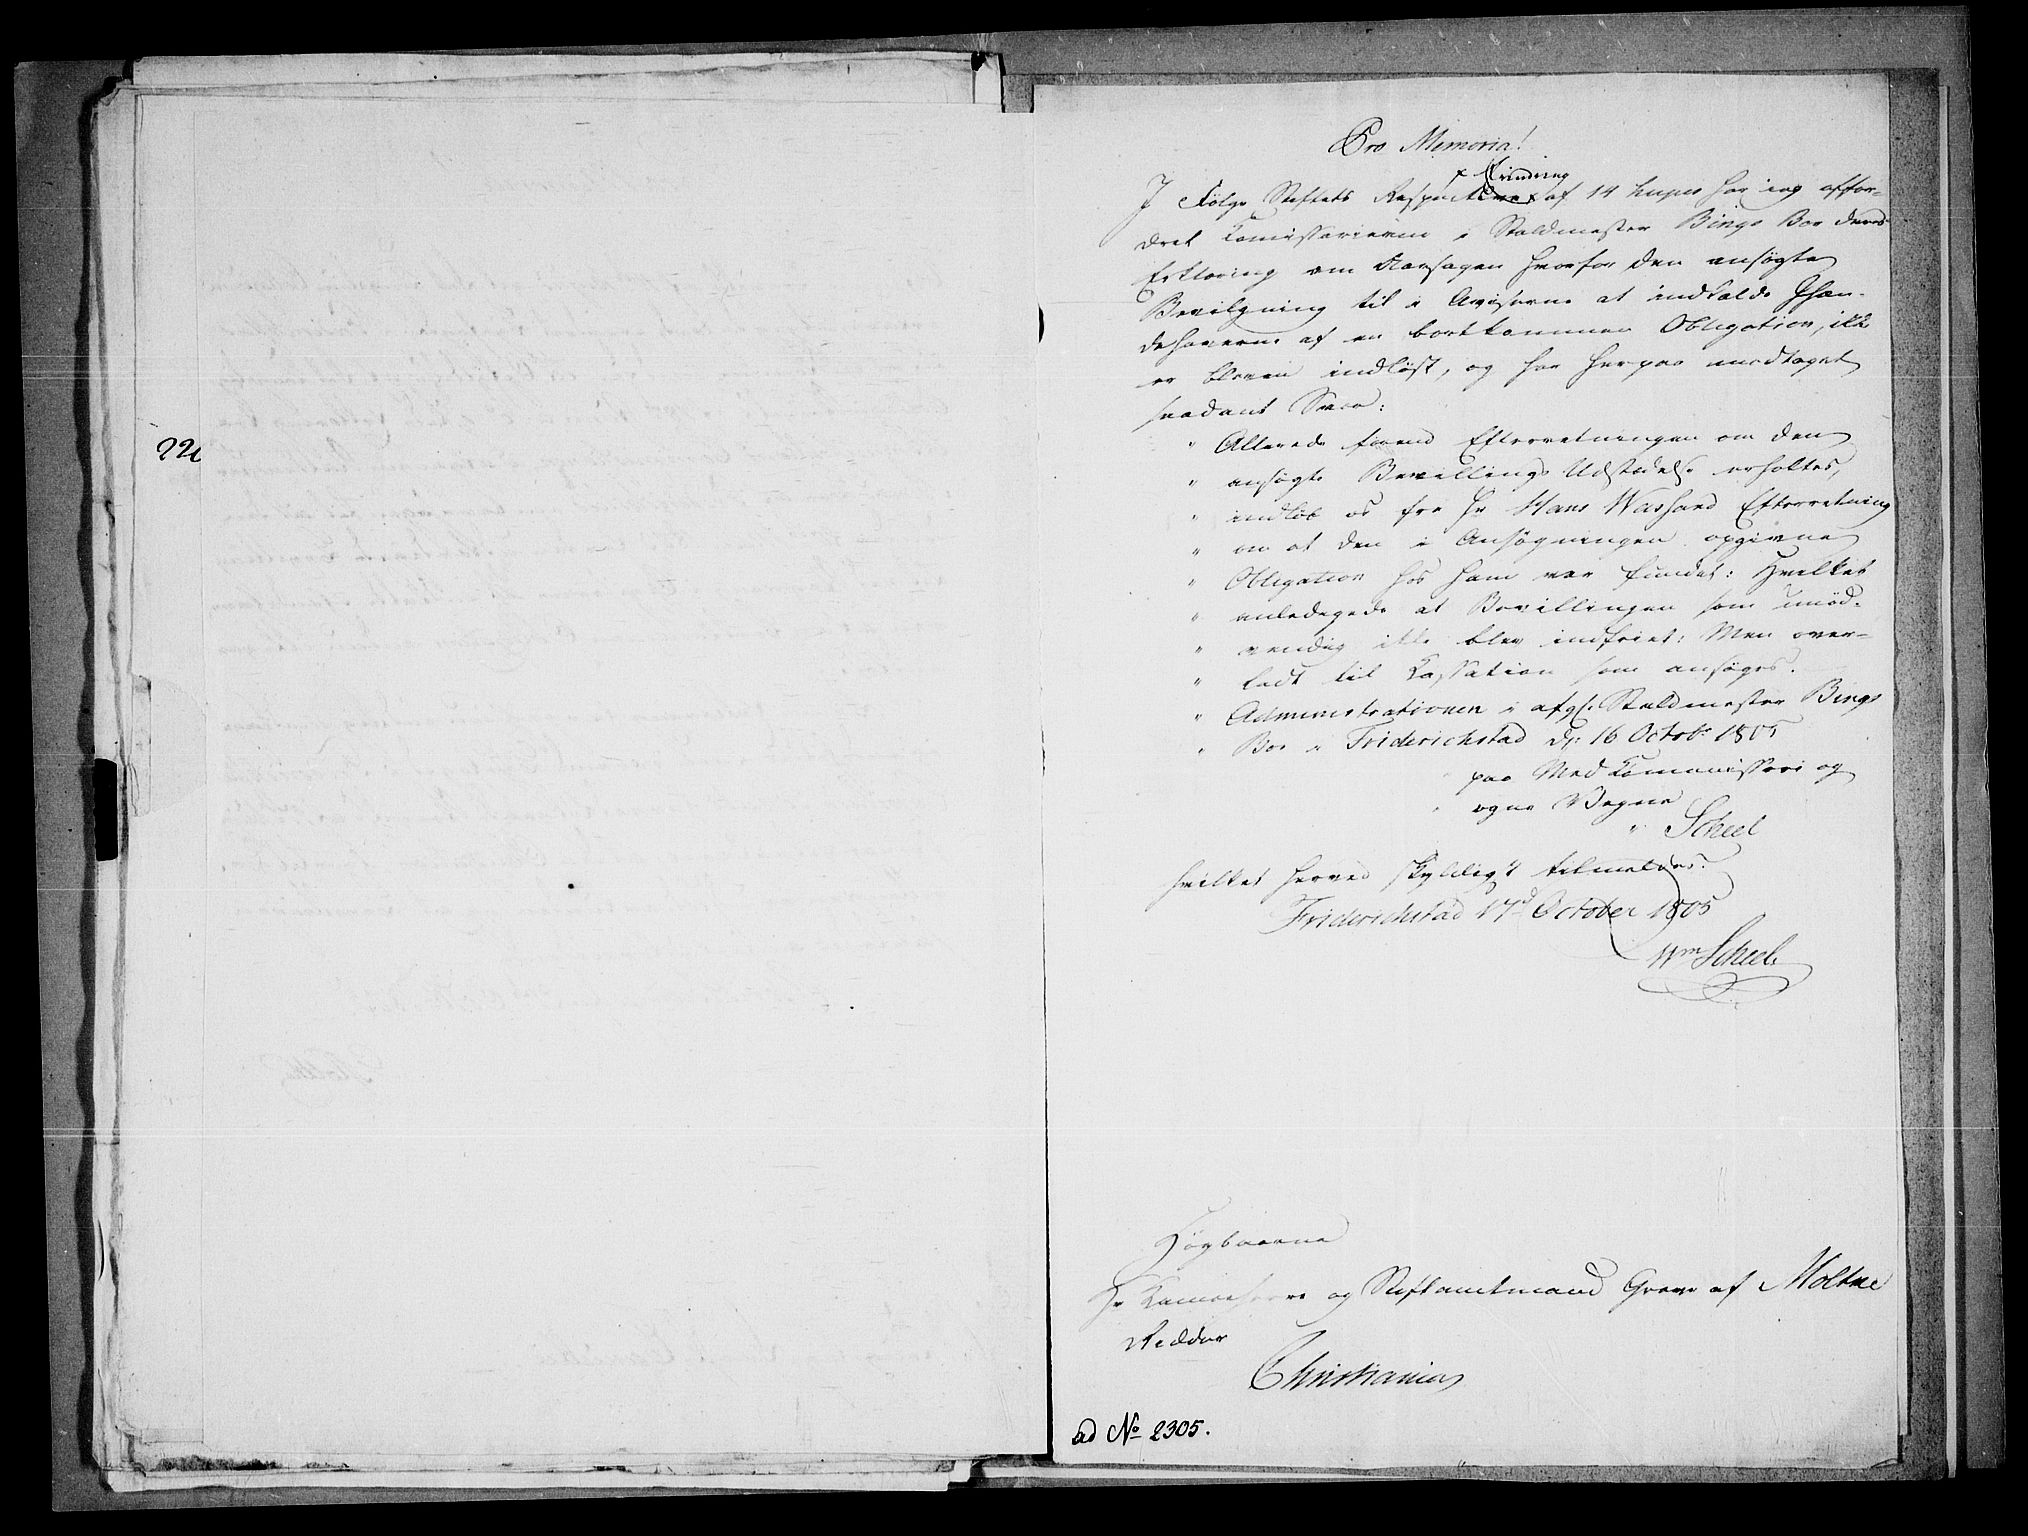 22
Pro Memoria!
x Erindring
I Følge Stiftets Respective x af 14 hujus har jeg affor-
dret Komissarierne i Staldmester Bings Boe deres
Erklæring om Aarsagen hvorfor den ansøgte
Bevilgning til i Aviserne at indkalde Ihæn-
dehaverne af en bortkommen Obligation, ikke
er bleven indløst, og har herpaa modtaget
saadant Svar:
" Allerede forend Efterretningen om den
" ansøgte Bevillings Udstædelse erholtes,
" indløb os fra Hr Hans Washard Efterretning
" om at den i Ansøgningen opgivne
" Obligation hos ham var fundet: Hvilket
" anledigede at Bevillingen som unød-
" vendig ikke blev indfriet: Men over-
" ladt til Kassation som ansøges.
" Administrationen i afgl. Staldmester Bings
" Boe i Friderichstad d: 16 Octobr 1805
paa Med Kommissairs og
" egne Vegne
" Scheel
hvilket herved skyldigst tilmeldes.
Friderichstad 17d October 1805
Wm Scheel
Høybaarne
Hr Kammerherre og Stiftamtmand Greve af Moltke
Ridder
Christiania
ad No 2305.